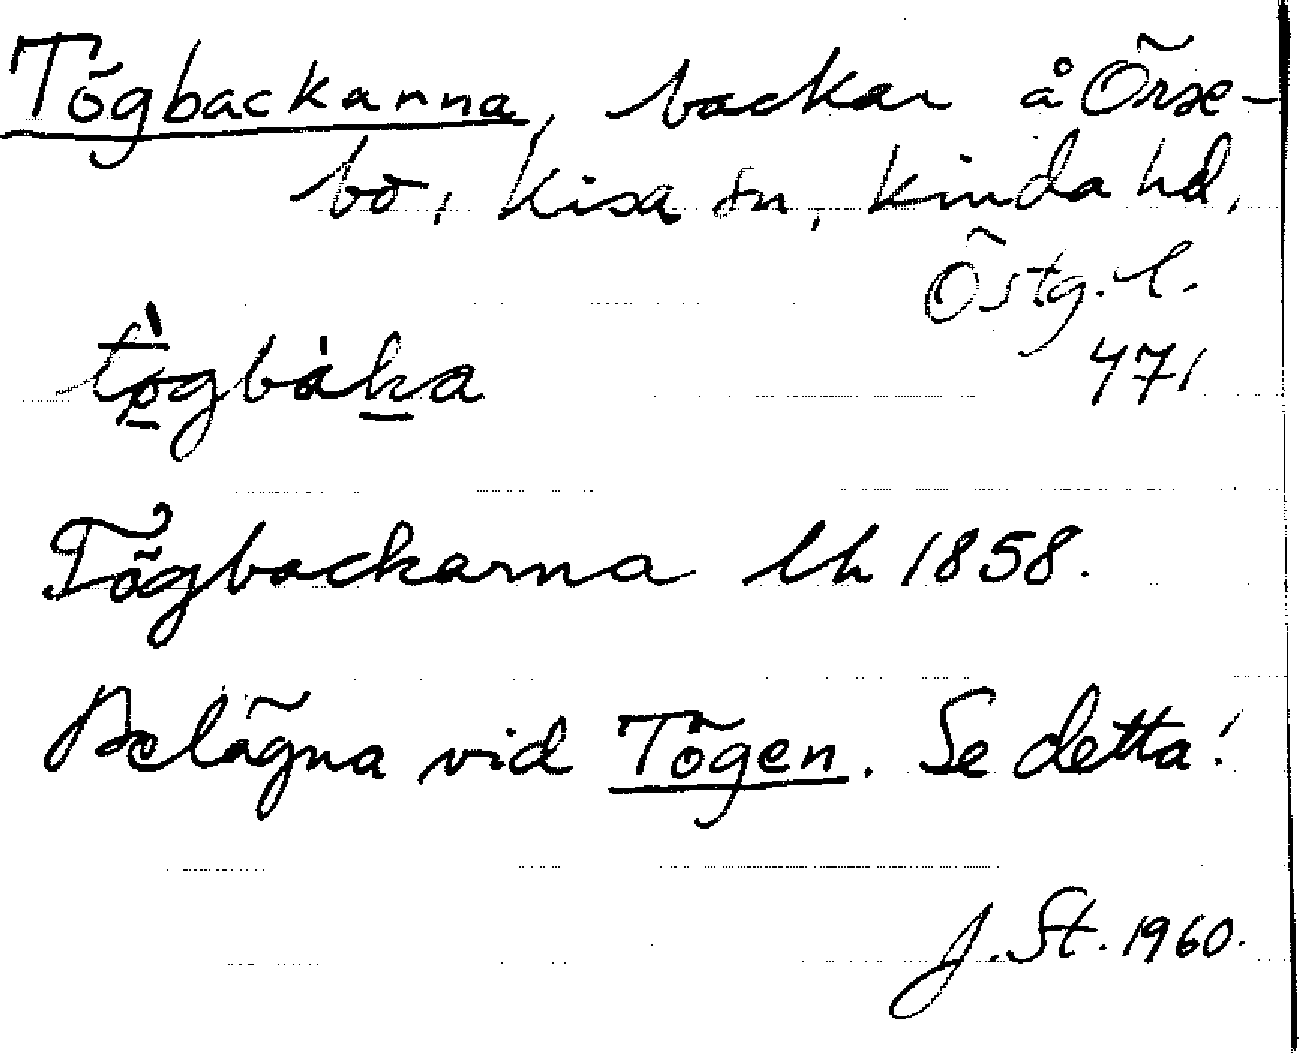 Tögbackarna, backar å Örse-
bo, Kisa sn, Kinda hd,
Östg. l.
471
tø̀gbàka
Tögbackarna lh 1858.
Belägna vid Tögen. Se detta!
J. St. 1960.